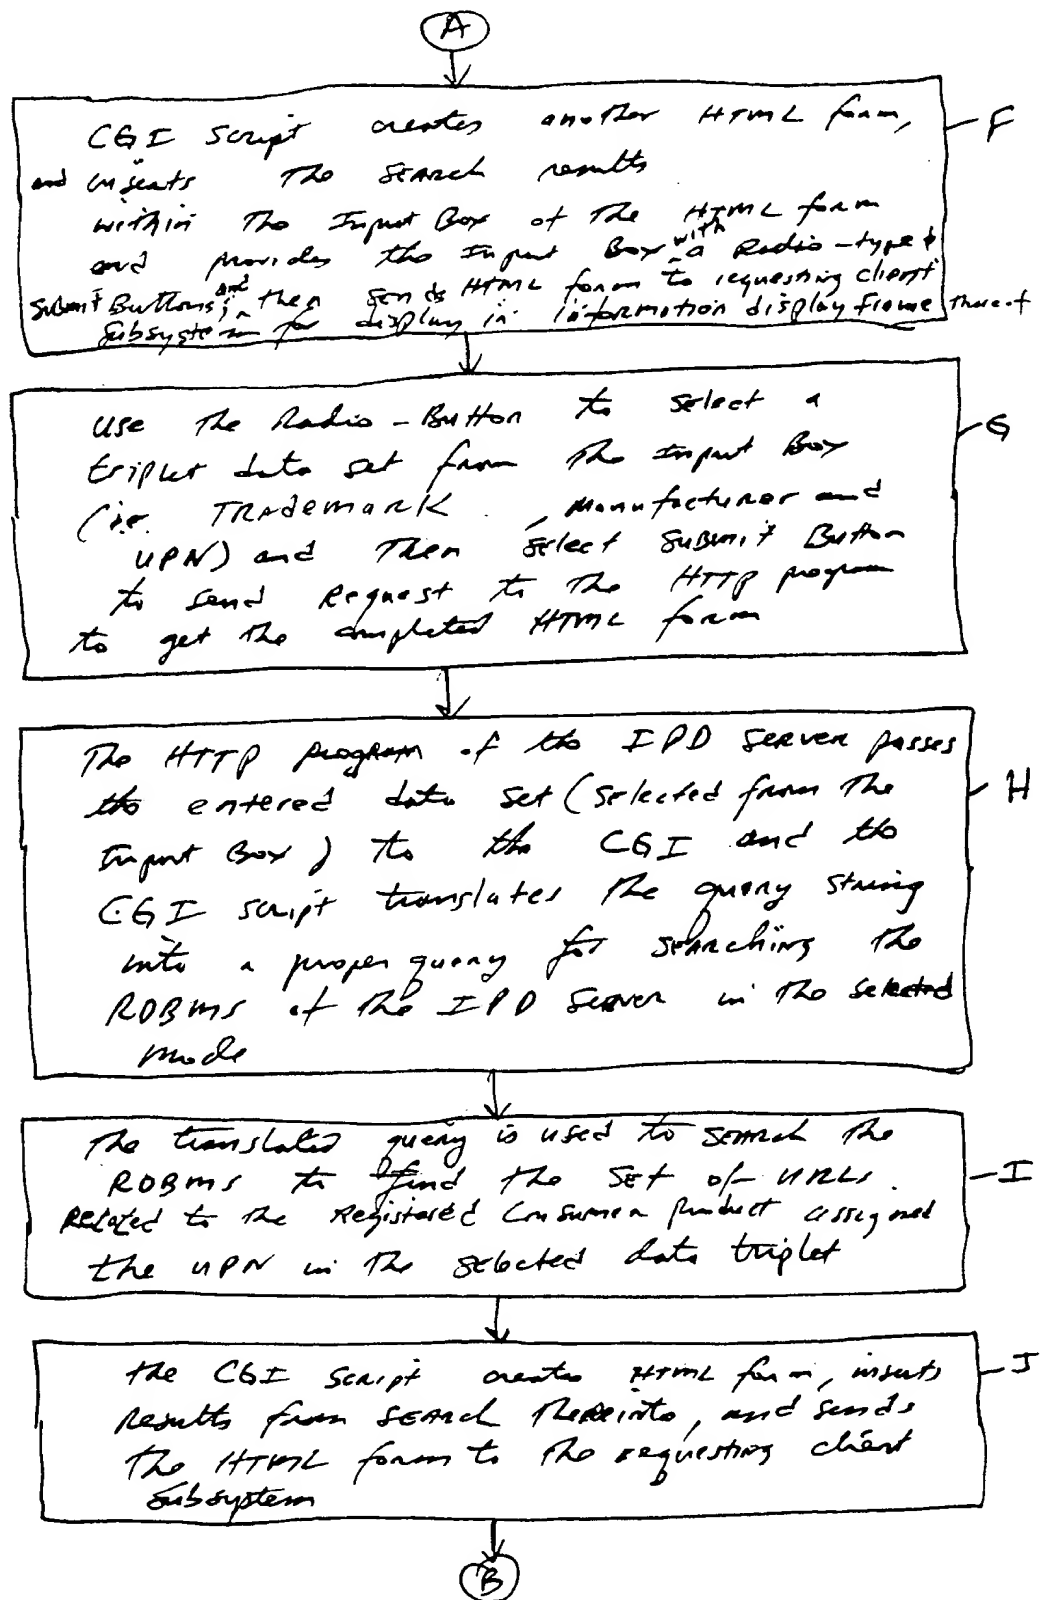 A
CGI Script creates another HTML form, F
and inserts the search results
within the Input Box of the HTML form
and provides the Input Box with a Radio-type &
Submit Buttons; and then sends HTML form to requesting client
subsystem for display in information display frame thereof
use the Radio-Button to select a G
triplet data set from the Input Box
(i.e. TRADEMARK, Manufacturer and
UPN) and then select submit Button
to send Request to the HTTP program
to get the completed HTML form
The HTTP program of the IPD Server passes
the entered data set (selected from the H
Input Box) to the CGI and the
CGI script translates the query string
into a proper query for searching the
RDBMS of the IPD Server in the selected
mode
The translated query is used to search the
RDBMS to find the set of URLs I
Related to the Registered Consumer product assigned
the UPN in the selected data triplet
the CGI Script creates HTML form, inserts J
Results from search thereinto, and sends
the HTML form to the requesting client
subsystem
B